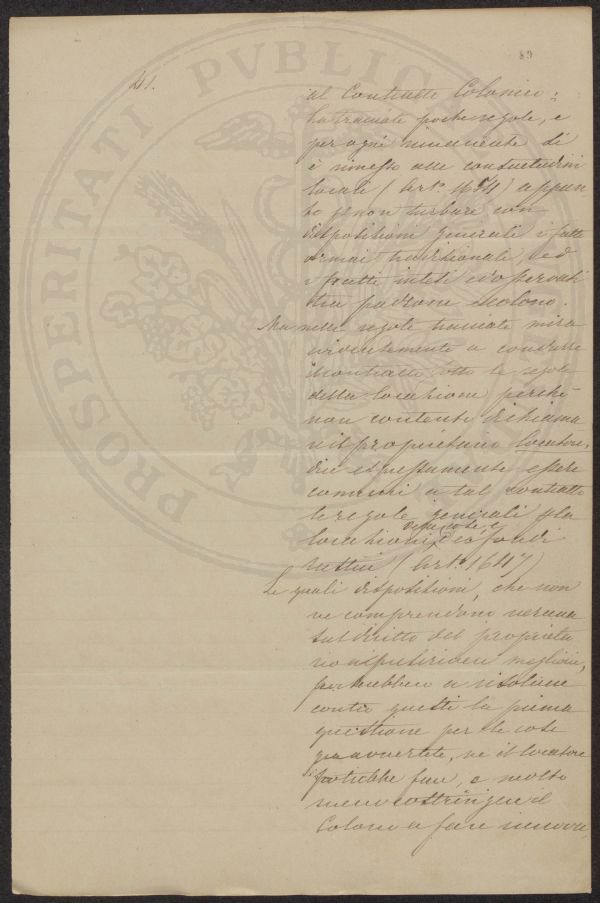 89
41.
PROSPERITATI PVBLICAE
al Contratto Colonico
ha tracciate poche regole, e
per ogni di
è rimesso alle consuetudini
locali (Art.° 1654) appun
to p non turbare con
disposizioni generali i fatti
ormai tradizionali, ed
i patti intesi ed osservati
tra padrone e colono.
Ma nelle regole tracciate mira
evidentemente a condurre
il contratto sotto le regole
della locazione perchè
non contento di chiama
re il proprietario locatore,
dice espressamente essere
comuni a tal contratto
le regole generali p la
locazioni delle cose e de fondi
rustici (Art.° 1647)
Le quali disposizioni, che non
ne comprendono veruna
sul diritto del proprieta
rio migliorie,
porterebbero a risolvere
contro questi la prima
questione per le cose
già avvertite, nè il locatore
potrebbe fare, e molto
meno costringere il
Colono a fare